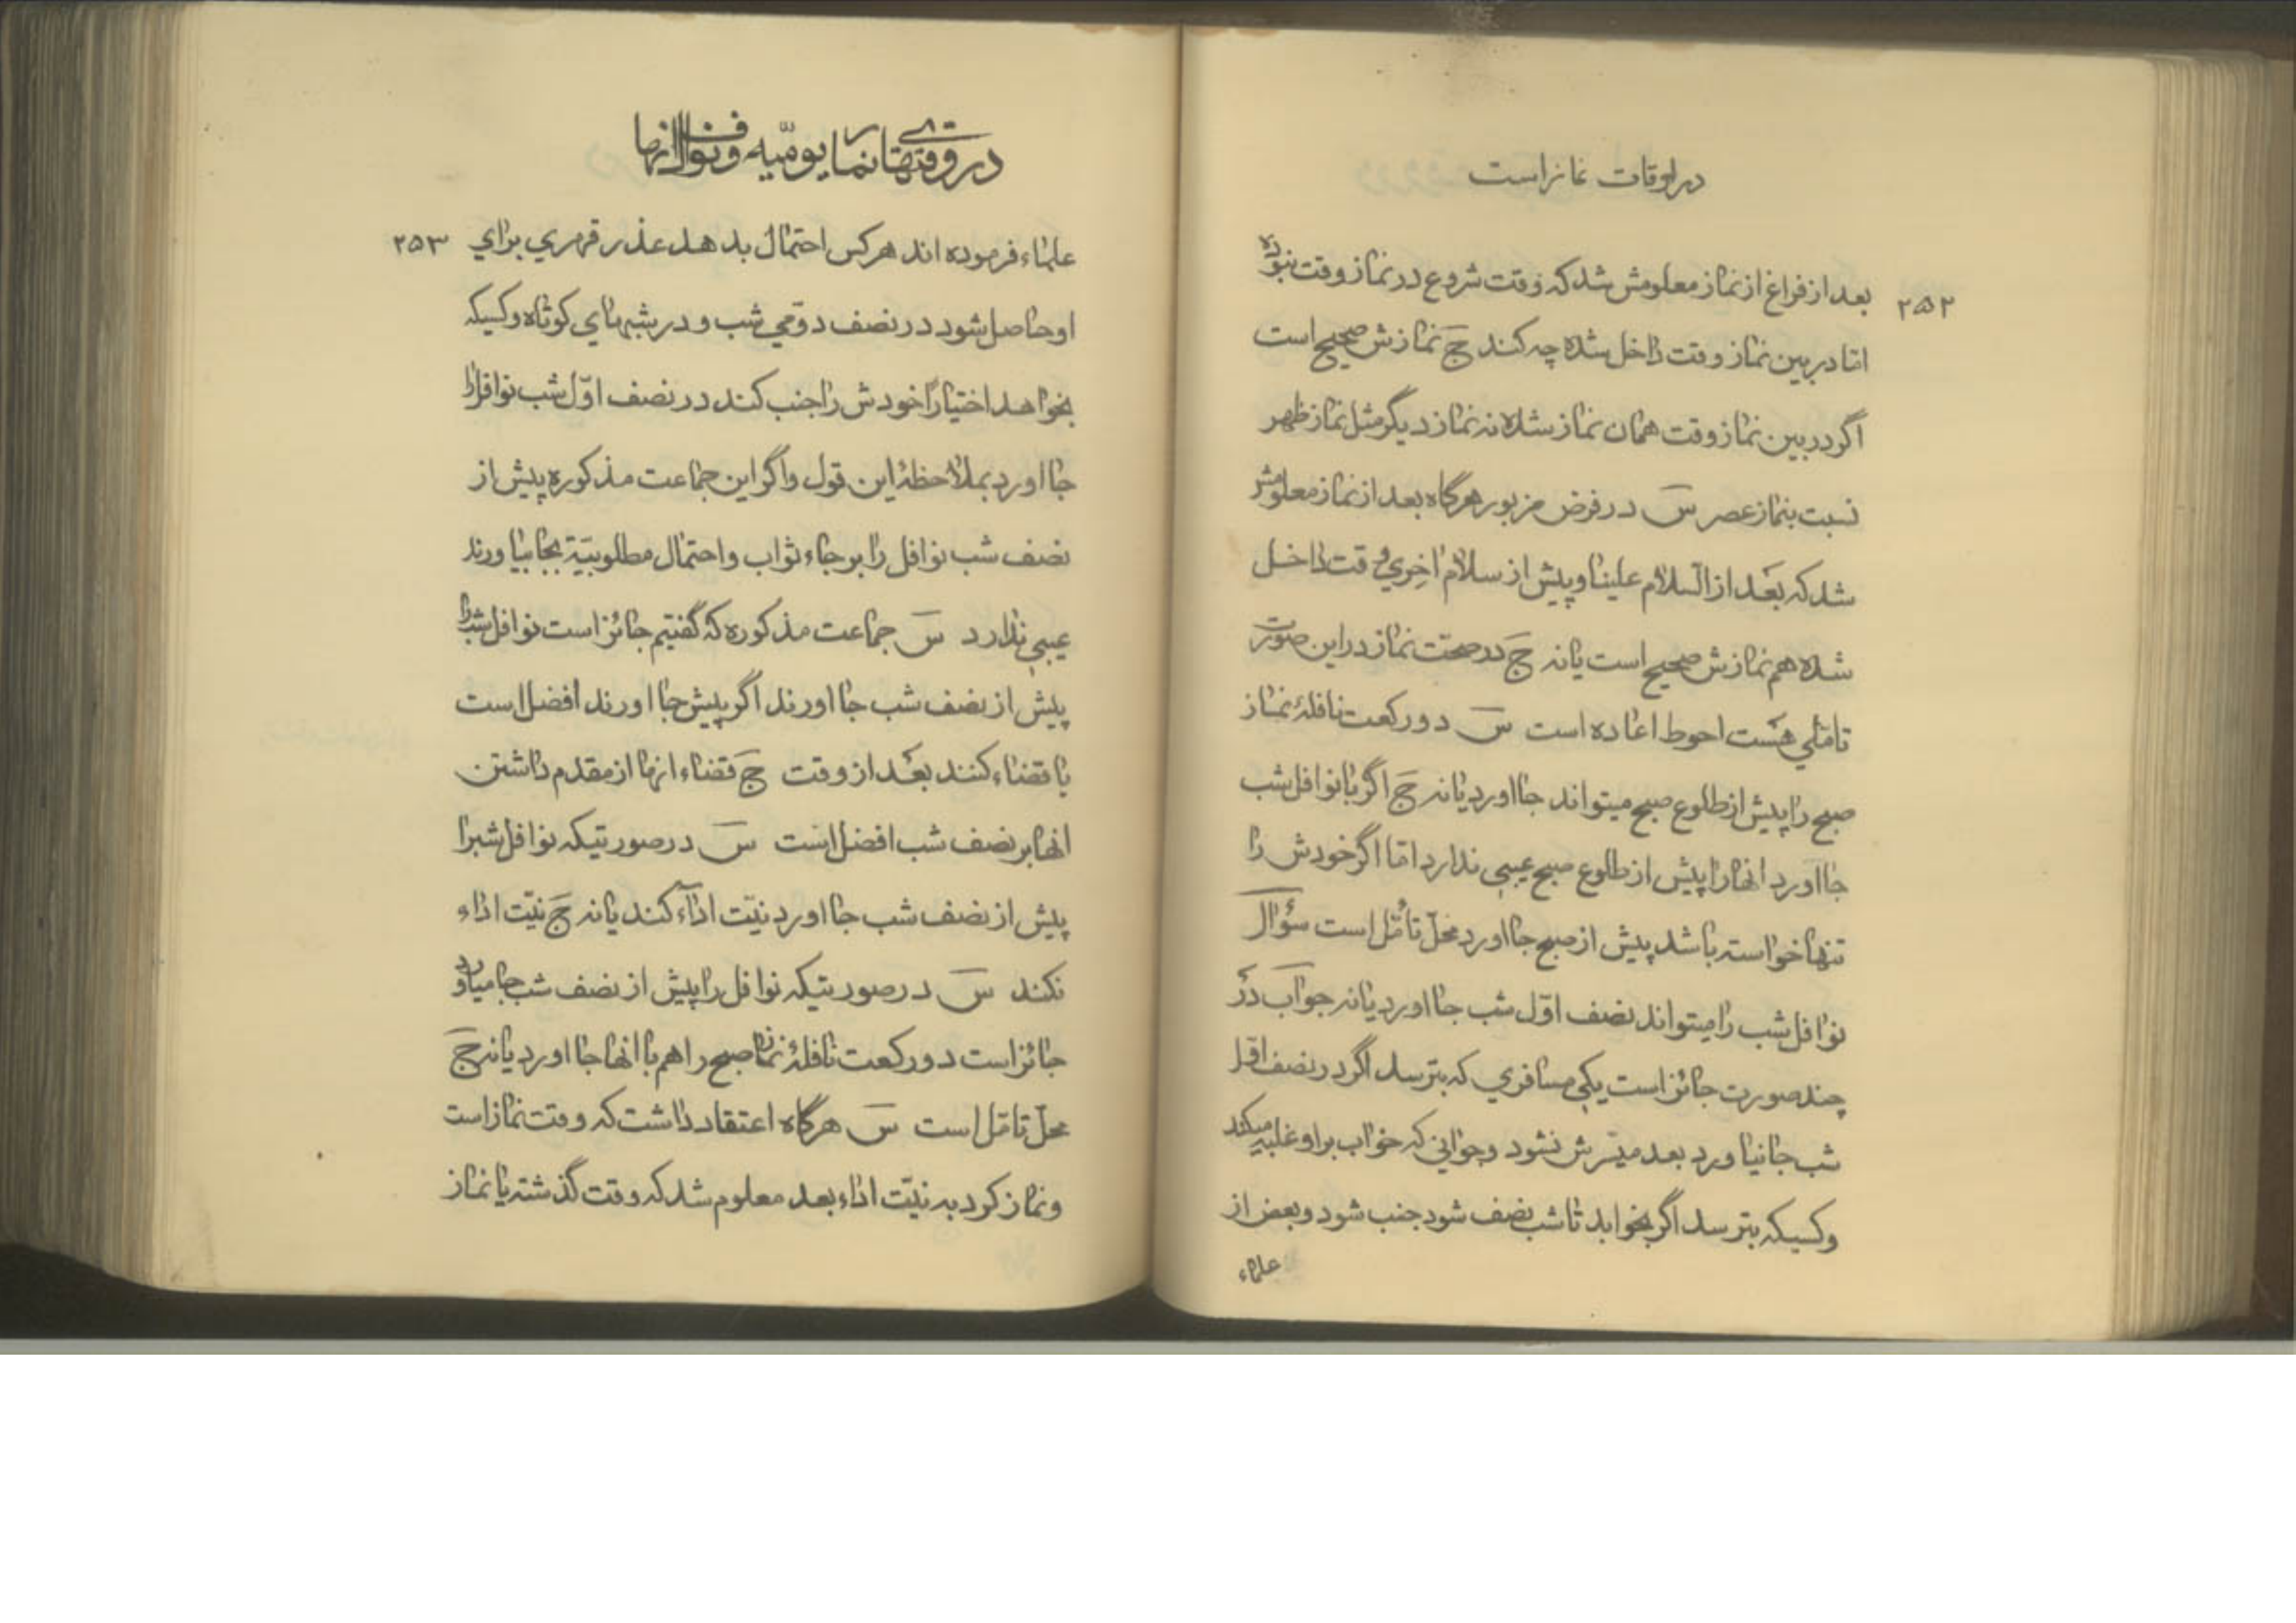 در اوقات نماز است
۲۵۲
بعد از فراغ از نماز معلومش شد که وقت شروع در نماز وقت نبوده
امّا در بین نماز وقت داخل شده چه کند جَ نمازش صحیح است
اگر در بین نماز وقت همان نماز شده نه نماز دیگر مثل نماز ظهر
نسبت بنماز عصر سَ در فرض مزبور هرگاه بعد از نماز معلومش
شد که بعد از السّلام علینا و پیش از سلام اخِری وقت داخل
شده هم نمازش صحیح است یا نه جَ در صحّت نماز در این صورت
تامّلی هست احوط اعاده است سَ دو رکعت نافلهٔ نماز
صبح را پیش از طلوع صبح میتواند جا اورد یا نه جَ اگر با نوافل شب
جا اورد انها را پیش از طلوع صبح عیبی ندارد امّا اگر خودش را
تنها خواسته باشد پیش از صبح جا اورد محلّ تأمّل است سؤال
نوافل شب را میتواند نصف اوّل شب جا اورد یا نه جواب در
چند صورت جائز است یکی مسافری که بترسد اگر در نصف اوّل
شب جا نیاورد بعد میسّرش نشود و جوانی که خواب بر او غلبه میکند
و کسیکه بترسد اگر بخوابد تا شب نصف شود جنب شود و بعض از
علماء
در وقتهای نماز یومیّه و نوافل انها
۲۵۳
علماء فرموده اند هر کس احتمال بدهد عذر قهری برای
او حاصل شود در نصف دوّمی شب و در شبهای کوتاه و کسیکه
بخواهد اختیاراً خودش را جنب کند در نصف اوّل شب نوافل را
جا اورد بملاحظهٔ این قول و اگر این جماعت مذکوره پیش از
نصف شب نوافل را برجاء ثواب و احتمال مطلوبیّة بجا بیاورند
عیبی ندارد سَ جماعت مذکوره که گفتیم جائز است نوافل شب را
پیش از نصف شب جا اورند اگر پیش جا اورند افضل است
یا قضاء کنند بعد از وقت جَ قضاء انها از مقدم داشتن
انها بر نصف شب افضل است سَ در صورتیکه نوافل شبرا
پیش از نصف شب جا اورد نیّت اداء کند یا نه جَ نیّت اداء
نکند سَ در صورتیکه نوافل را پیش از نصف شب جا میاورد
جائز است دو رکعت نافلهٔ نماز صبح را هم با انها جا اورد یا نه جَ
محلّ تامّل است سَ هرگاه اعتقاد داشت که وقت نماز است
و نماز کرد به نیّت اداء بعد معلوم شد که وقت گذشته یا نماز